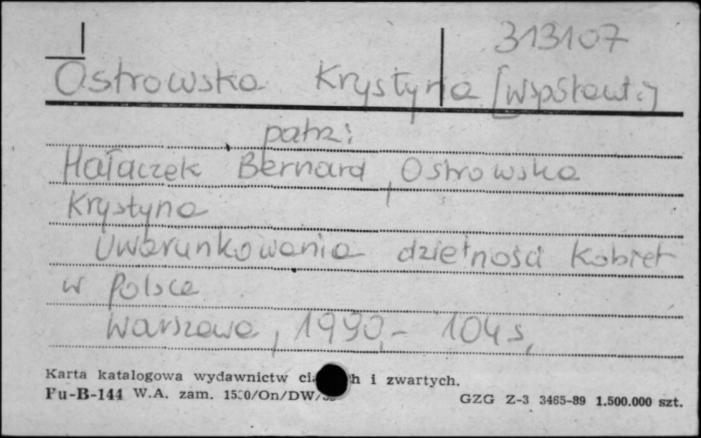 313107
Ostrowska Krystyna [współaut.]
patrz:
Hałaczek Bernard, Ostrowska
Krystyna
Uwarunkowania dzietności kobiet
w Polsce
Warszawa, 1990,- 104 s,
Karta katalogowa wydawnictw i zwartych.
Pu-B-144 W.A. zam. GZG Z-3 3465-89 1.500.000 szt.